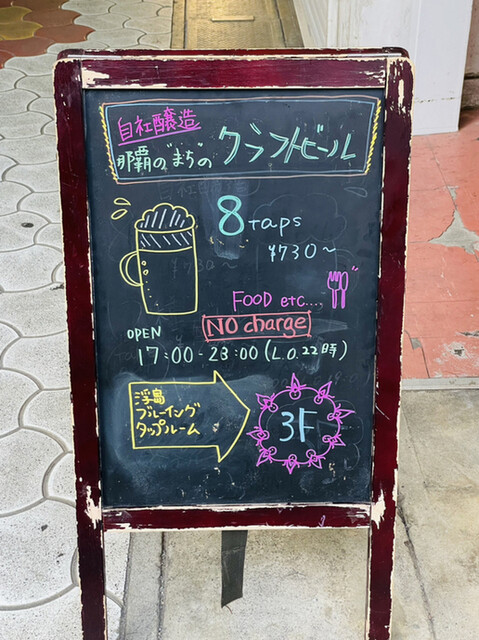 自社醸造
那覇の"まち"の クラフトビール
8 TAPS
¥730〜
FOOD etc....
NO charge
OPEN
17:00-23:00 (L.O.22時)
浮島
ブルーイング
タップルーム
3F